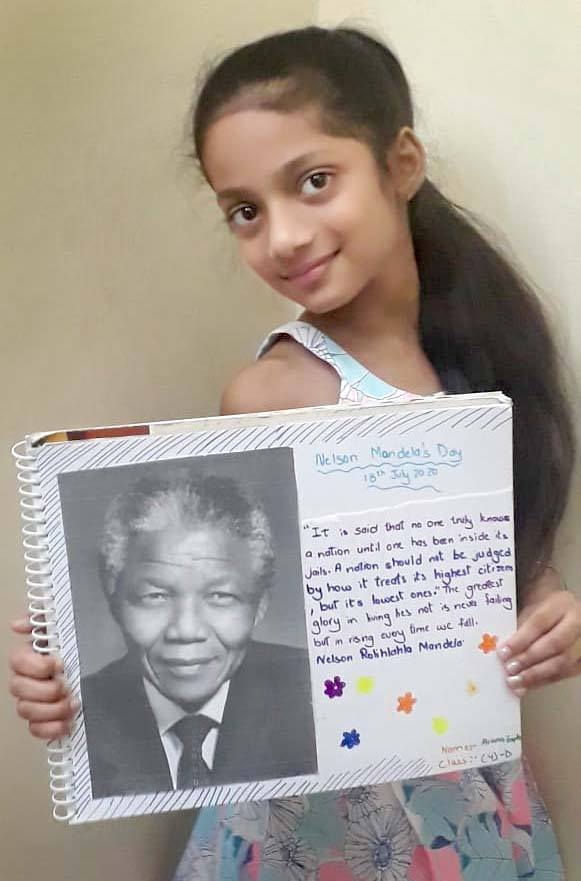 Nelson Mandela's Day
18th July 2020
"It is said that no one truly knows
a nation until one has been inside its
jails. A nation should not be judged
by how it treats its highest citizens
, but its lowest ones." The greatest
glory in living lies not is never falling
but in rising every time we fall.
Nelson Rolihlahla Mandela.
Name:-
Class:- (V)-D